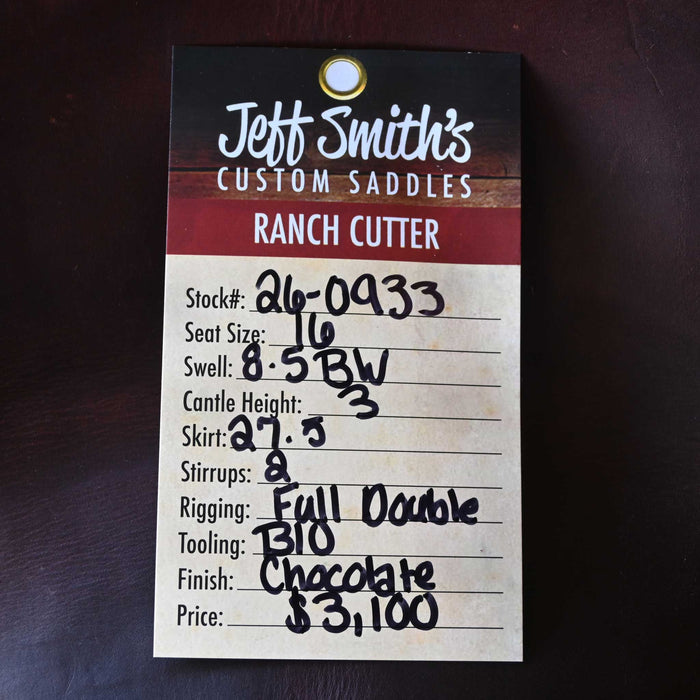 Jeff Smith's
CUSTOM SADDLES
RANCH CUTTER
Stock#: 26-0933
Seat Size: 16
Swell: 8.5 BW
Cantle Height: 3
Skirt: 27.5
Stirrups: 2
Rigging: Full Double
Tooling: B10
Finish: Chocolate
Price: $3,100